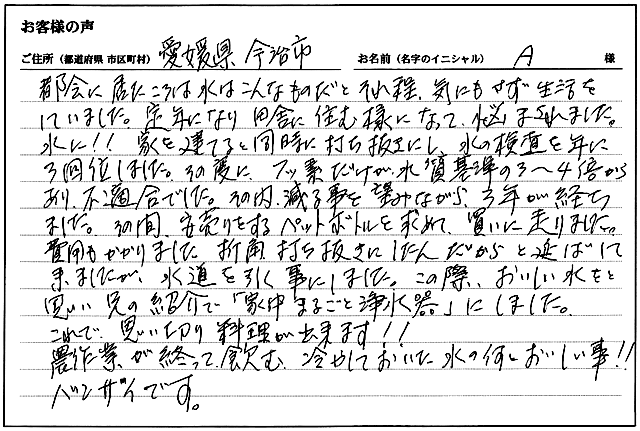 お客様の声
ご住所（都道府県 市区町村） 愛媛県 今治市 お名前（名字のイニシャル） A 様
都会に居たころは水はこんなものだとそれ程、気にもせず生活を
していました。定年になり田舎に住む様になって、悩まされました。
水に!! 家を建てると同時に打ち抜きにし、水の検査を年に
3回位しました。その度に、フッ素だけが水質基準の3〜4倍から
あり、不適合でした。その内、減る事を望みながら、3年が経ち
ました。その間、安売りをするペットボトルを求めて、買いに走りました。
費用もかかりました 折角、打ち抜きにしたんだからと延ばして
来ましたが、水道を引く事にしました。この際、おいしい水をと
思い 兄の紹介で「家中まるごと浄水器」にしました。
これで、思い切り料理が出来ます!!
農作業が終って、飲む、冷やしておいた水の何とおいしい事!!
バンザイです。